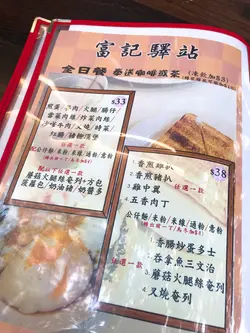 富記驛站
全日餐 奉送咖啡或茶 (凍飲加$3)
$33
煎蛋/牛肉/火腿/腸仔/
雪菜肉絲/炸菜肉絲/
沙嗲牛肉/
配公仔麵/米粉/米線/通粉/意粉
蘑菇火腿絲奄列+方包
菠蘿包/奶油豬/奶醬多
$38
1. 香煎雞扒
2. 香煎豬扒
3. 雞中翼
4. 五香肉丁
任選一款
配公仔麵/米粉/米線/通粉/意粉
1. 香腸炒蛋多士
2. 吞拿魚三文治
3. 蘑菇火腿奄列
4. 叉燒奄列
任選一款